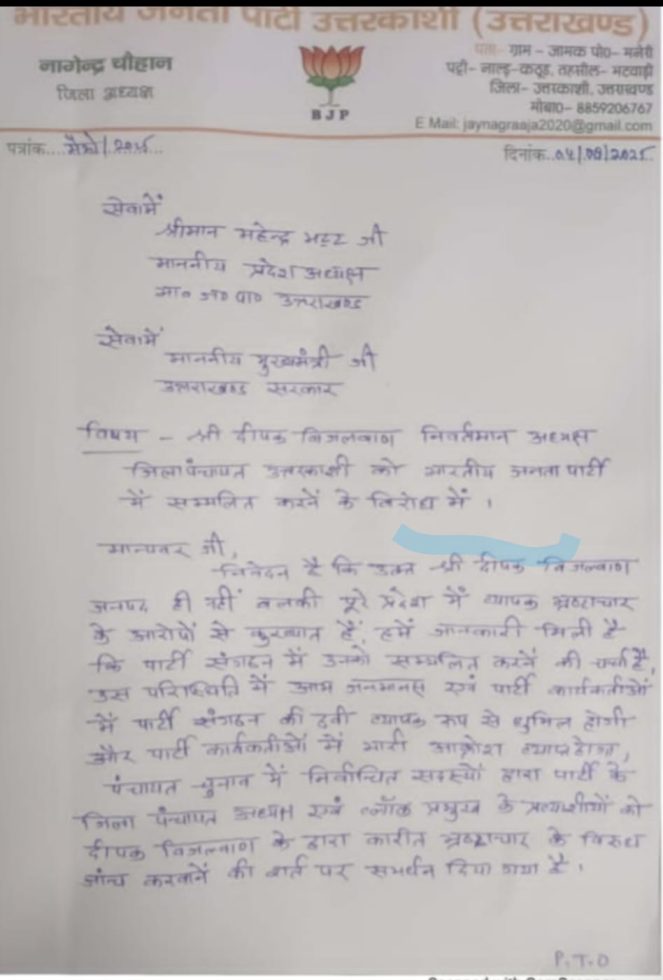 भारतीय जनता पार्टी उत्तरकाशी (उत्तराखण्ड)
नागेन्द्र चौहान
जिला अध्यक्ष
BJP
पता:- ग्राम - जामक पो0- मनेरी
पट्टी- नाल्ड़-कठूड़, तहसील- भटवाड़ी
जिला- उत्तरकाशी, उत्तराखण्ड
मोबा0- 8859206767
E Mail: jaynagraaja2020@gmail.com
पत्रांक.... /2025...
दिनांक..04/09/2025
सेवामें
श्रीमान महेन्द्र भट्ट जी
माननीय प्रदेश अध्यक्ष
भा० ज० पा० उत्तराखण्ड
सेवामें
माननीय मुख्यमंत्री जी
उत्तराखण्ड सरकार
विषय - श्री दीपक बिजलवाण निवर्तमान अध्यक्ष
जिला पंचायत उत्तरकाशी को भारतीय जनता पार्टी
में सम्मलित करनें के विरोध में ।
मान्यवर जी,
निवेदन है कि उक्त श्री दीपक बिजल्वाण
जनपद ही नहीं बल्की पूरे प्रदेश में व्यापक भ्रष्टाचार
के आरोपों से कुख्यात हैं, हमें जानकारी मिली है
कि पार्टी संगठन में उनको सम्मलित करनें की चर्चा है,
उस परिस्थिति में आम जनमानस एवं पार्टी कार्यकर्ताओं
में पार्टी संगठन की छवी व्यापक रूप से धुमिल होगी
और पार्टी कार्यकर्ताओं में भारी आक्रोश व्याप्त होगा,
पंचायत चुनाव में निर्वाचित सदस्यों द्वारा पार्टी के
जिला पंचायत अध्यक्ष एवं ब्लॉक प्रमुख के प्रत्याशीयों को
दीपक बिजल्वाण के द्वारा कारीत भ्रष्टाचार के विरुध
जांच करवानें की शर्त पर समर्थन दिया गया है ।
P.T.O